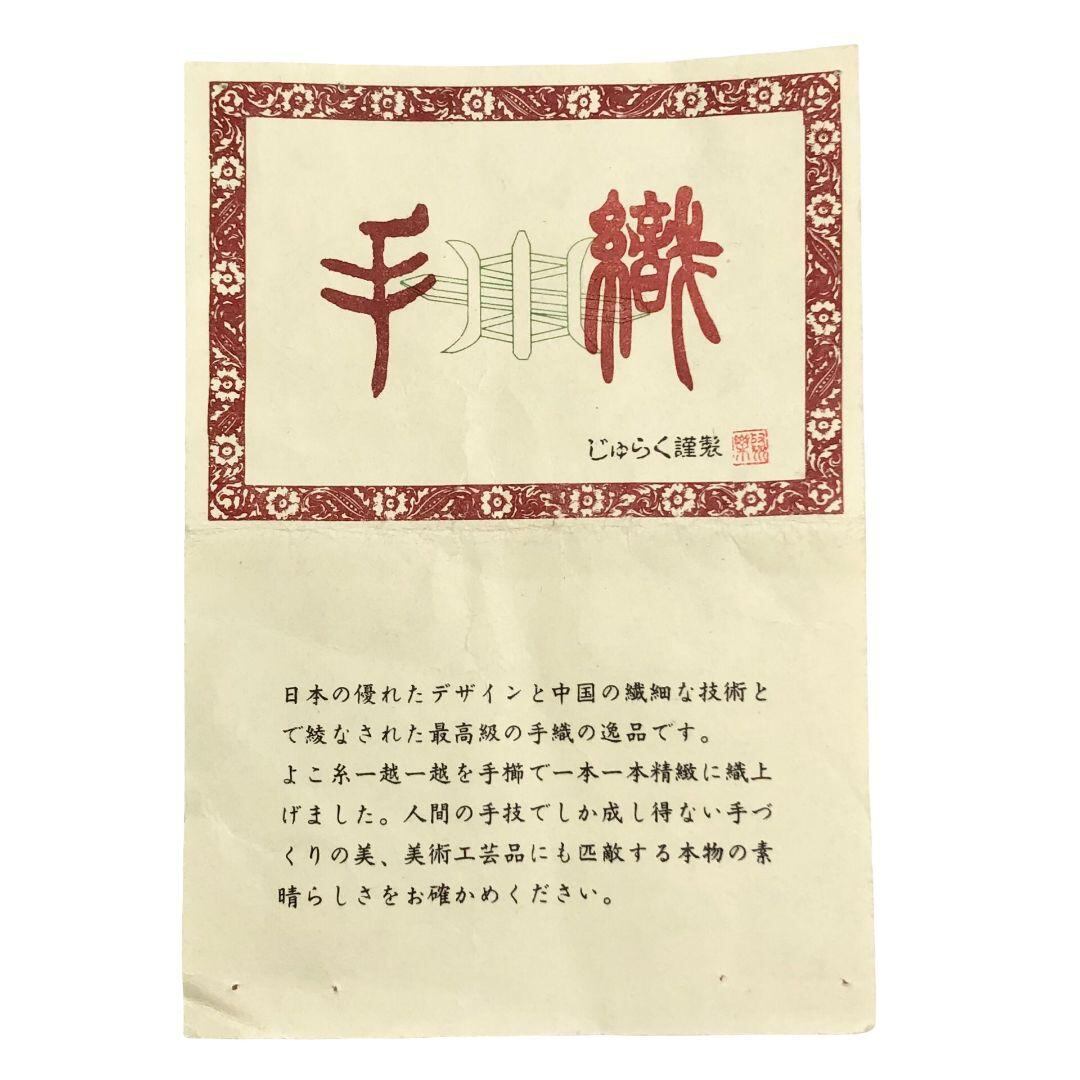 手織
じゅらく謹製
日本の優れたデザインと中国の繊細な技術と
で綾なされた最高級の手織の逸品です。
よこ糸一越一越を手櫛で一本一本精緻に織上
げました。人間の手技でしか成し得ない手づ
くりの美、美術工芸品にも匹敵する本物の素
晴らしさをお確かめください。